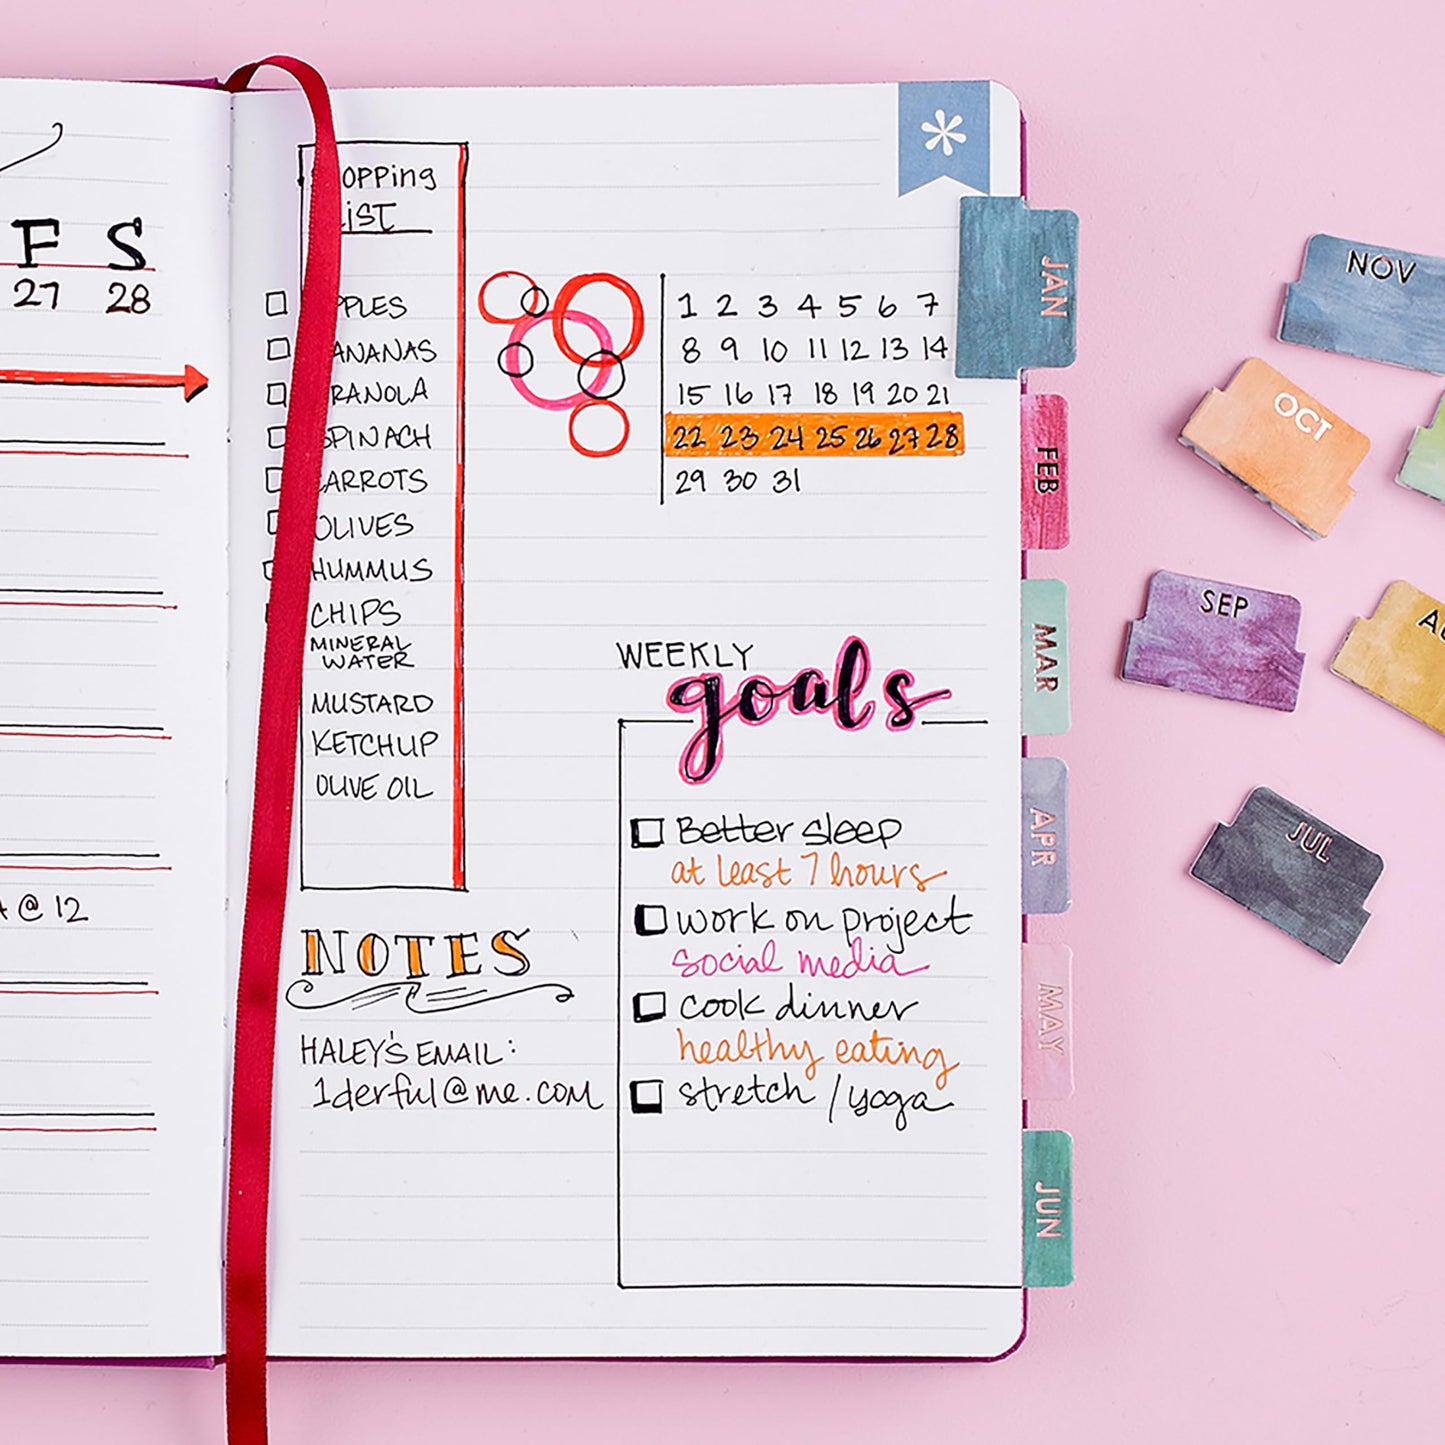 F S
27 28
@ 12
opping
iST
PPLES
ANANAS
RANOLA
SPINACH
CARROTS
OLIVES
HUMMUS
CHIPS
MINERAL
WATER
MUSTARD
KETCHUP
OLIVE OIL
1 2 3 4 5 6 7
8 9 10 11 12 13 14
15 16 17 18 19 20 21
22 23 24 25 26 27 28
29 30 31
WEEKLY
goals
Better sleep
at least 7 hours
work on project
social media
cook dinner
healthy eating
stretch / yoga
NOTES
HALEY'S EMAIL:
1derful@me.com
JAN
FEB
MAR
APR
MAY
JUN
NOV
OCT
SEP
JUL